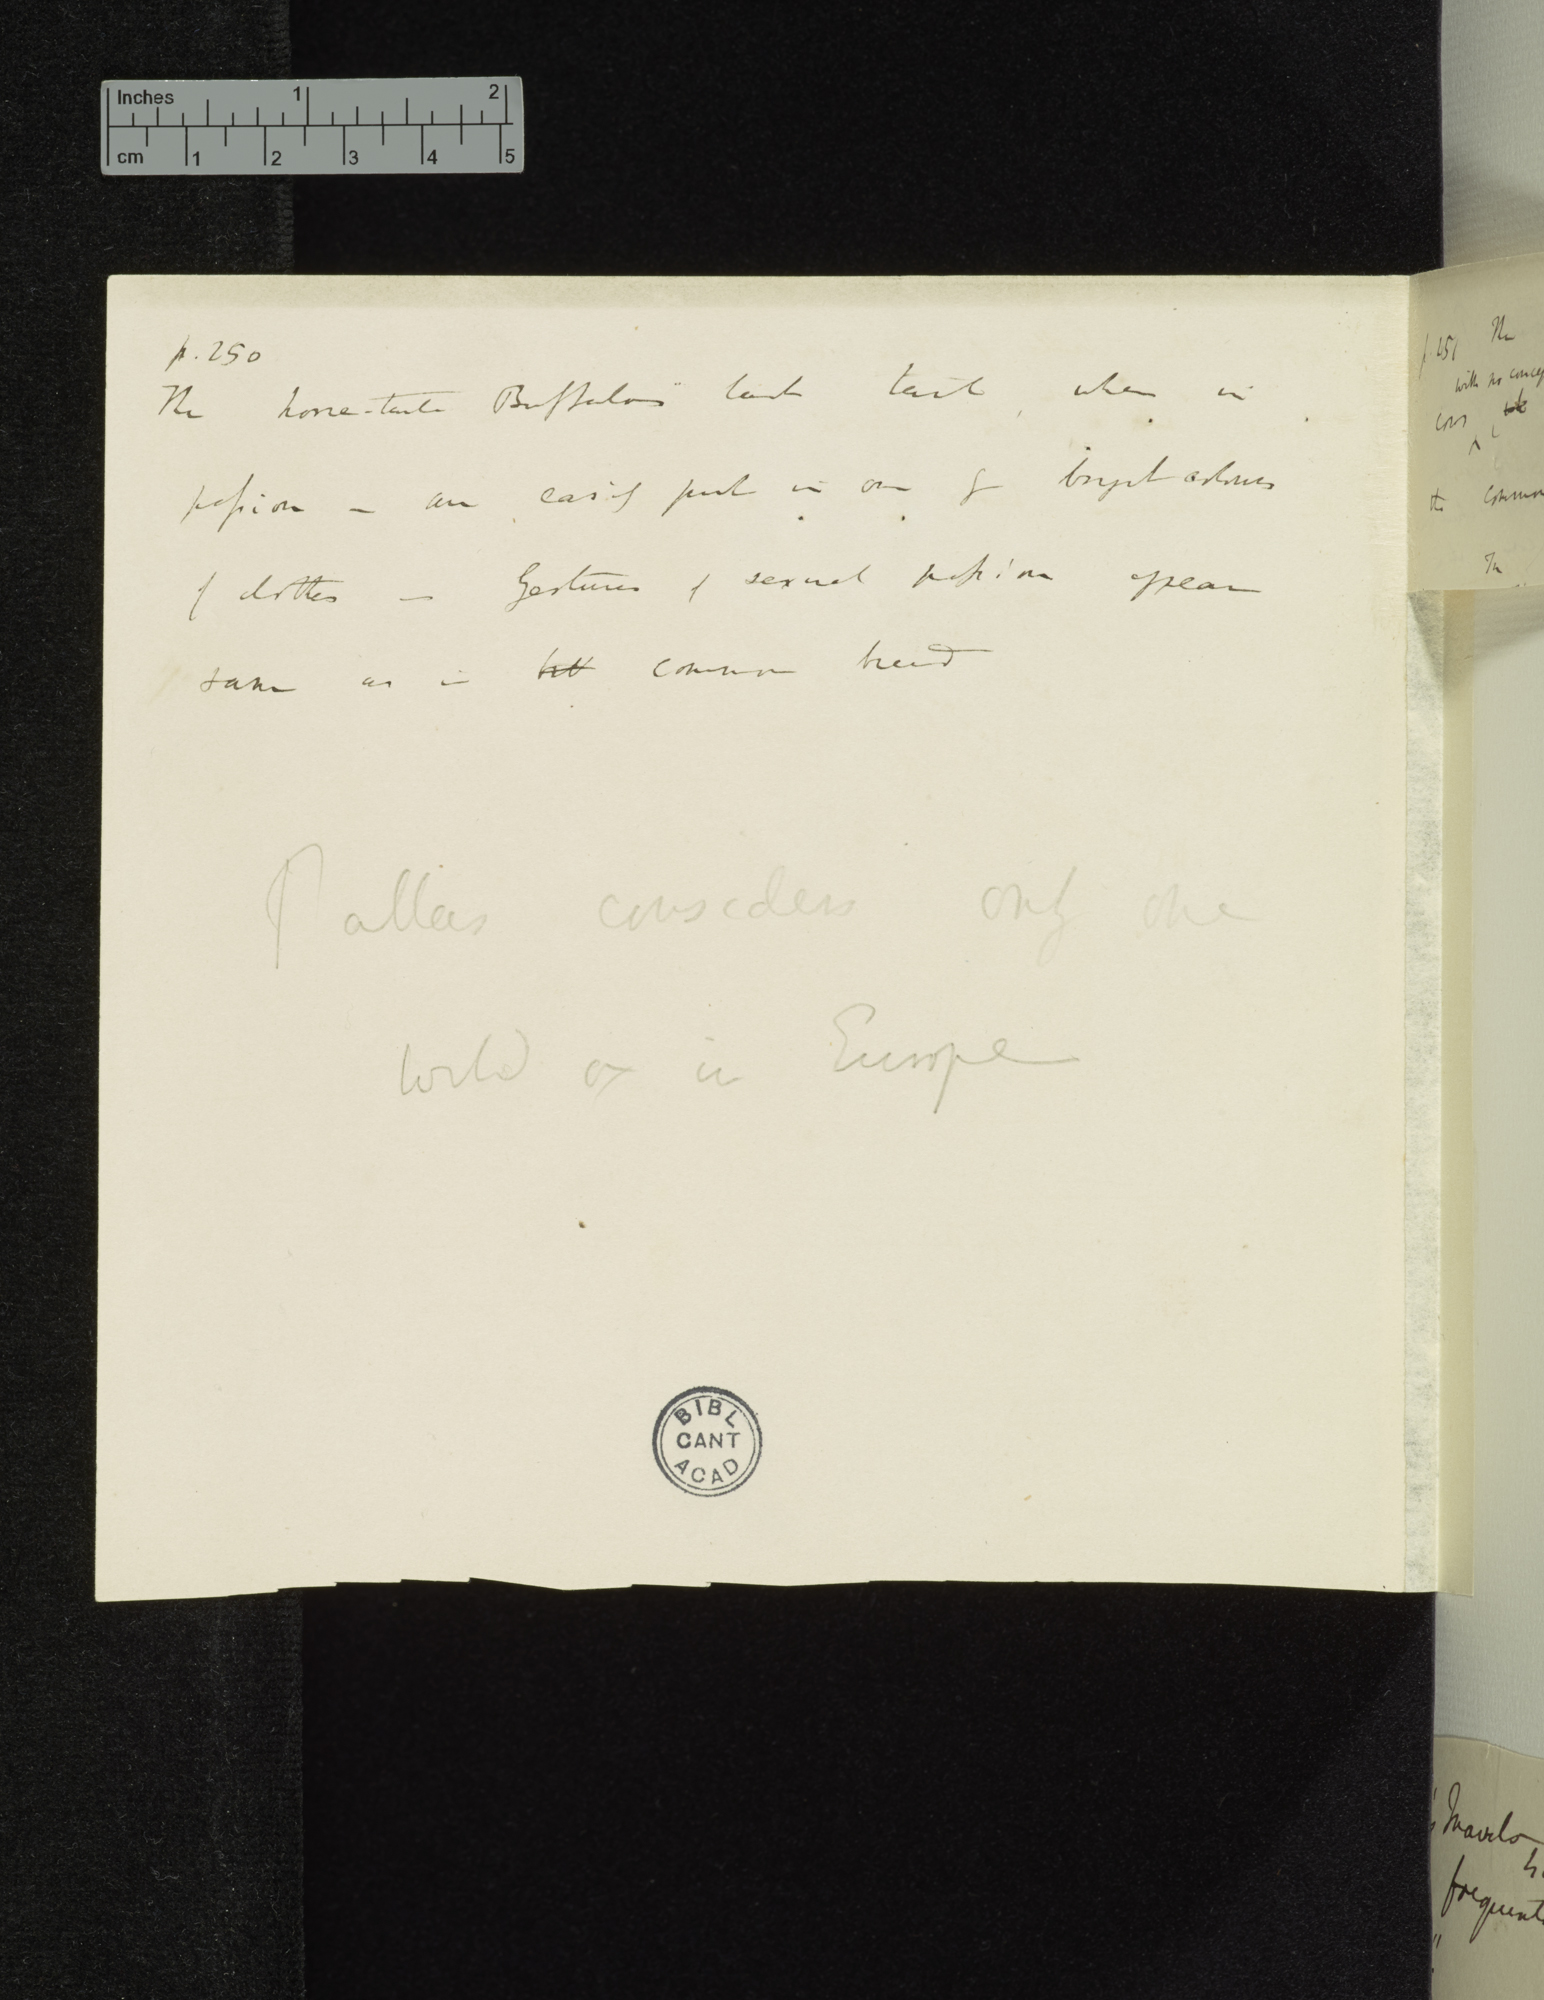 Inches 1 2
cm 1 2 3 4 5
p. 250
The horse-tailed Buffaloes lash tail, when in
passion — are easily put in one by bright colours
of clothes — Gestures of sexual passion appear
same as in common breed
Pallas considers only one
wild ox in Europe
BIBL
CANT
ACAD
p. 251 The
with no
cows
the common
In
Travels
frequent